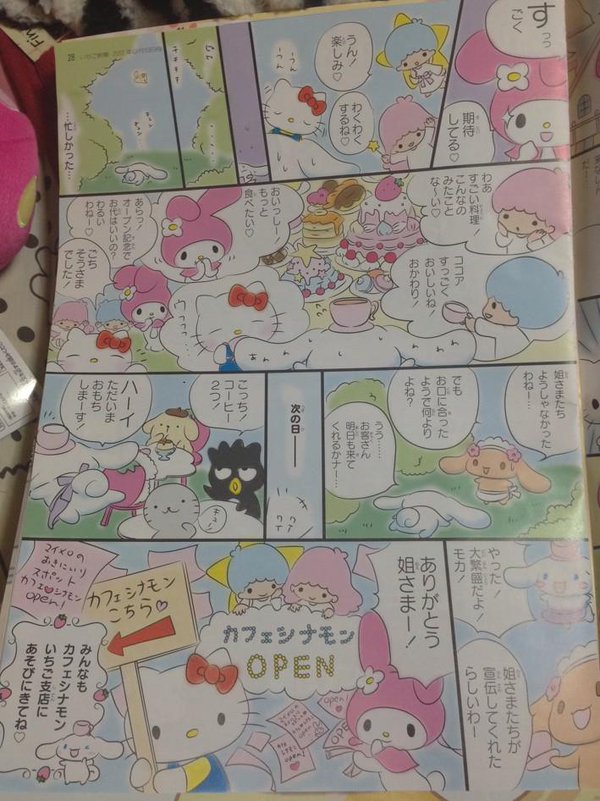 すっっ
ごく
期待
してる♡
うん!
楽しみ♡
わくわく
するね♡
うーん
…忙しかった…
わあ
すごい料理
こんなの
みたこと
な〜い♡
ココア
すっごく
おいしいね
おかわり!
おいっしー!
もっと
食べたい♡
あらっ!
オープン記念で
お代はいいの?
わるい
わねー♡
ごち
そうさま
でした!
姐さまたち
ようしゃなかった
わねー…
でも
お口に合った
ようで何より
よね?
うう……
お客さん
明日も来て
くれるかナー…
次の日――
こっち!
コーヒー
2つ!
ハーイ
ただいま
おもち
しまーす!
やった!
大繁盛だよ!
モカ!
姐さまたちが
宣伝してくれた
らしいわー
ありがとう
姐さまー!
カフェシナモン
OPEN
カフェシナモン
こちら♡
マイメロの
おきにいり
スポット
カフェシナモン
open!
みんなも
カフェシナモン
いちご支店に
あそびにきてね♡
28